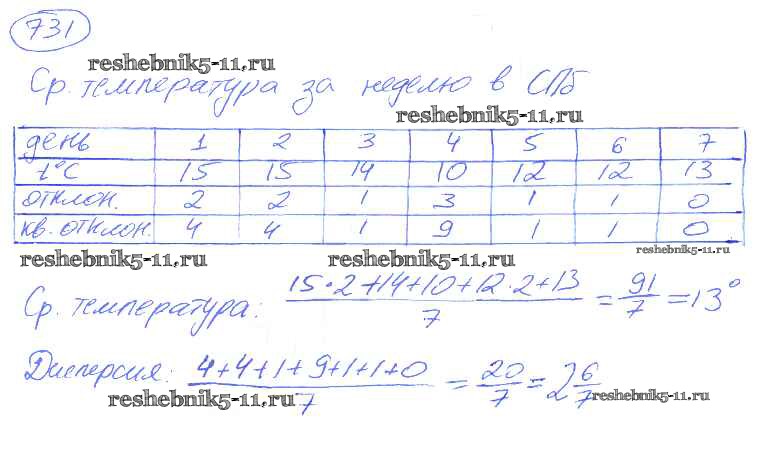 731
reshebnik5-11.ru
Ср. температура за неделю в СПб
reshebnik5-11.ru
день 1 2 3 4 5 6 7
t°C 15 15 14 10 12 12 13
отклон. 2 2 1 3 1 1 0
кв. отклон. 4 4 1 9 1 1 0
reshebnik5-11.ru reshebnik5-11.ru reshebnik5-11.ru
Ср. температура: (15·2+14+10+12·2+13)/7 = 91/7 = 13°
Дисперсия: (4+4+1+9+1+1+0)/7 = 20/7 = 2 6/7
reshebnik5-11.ru reshebnik5-11.ru